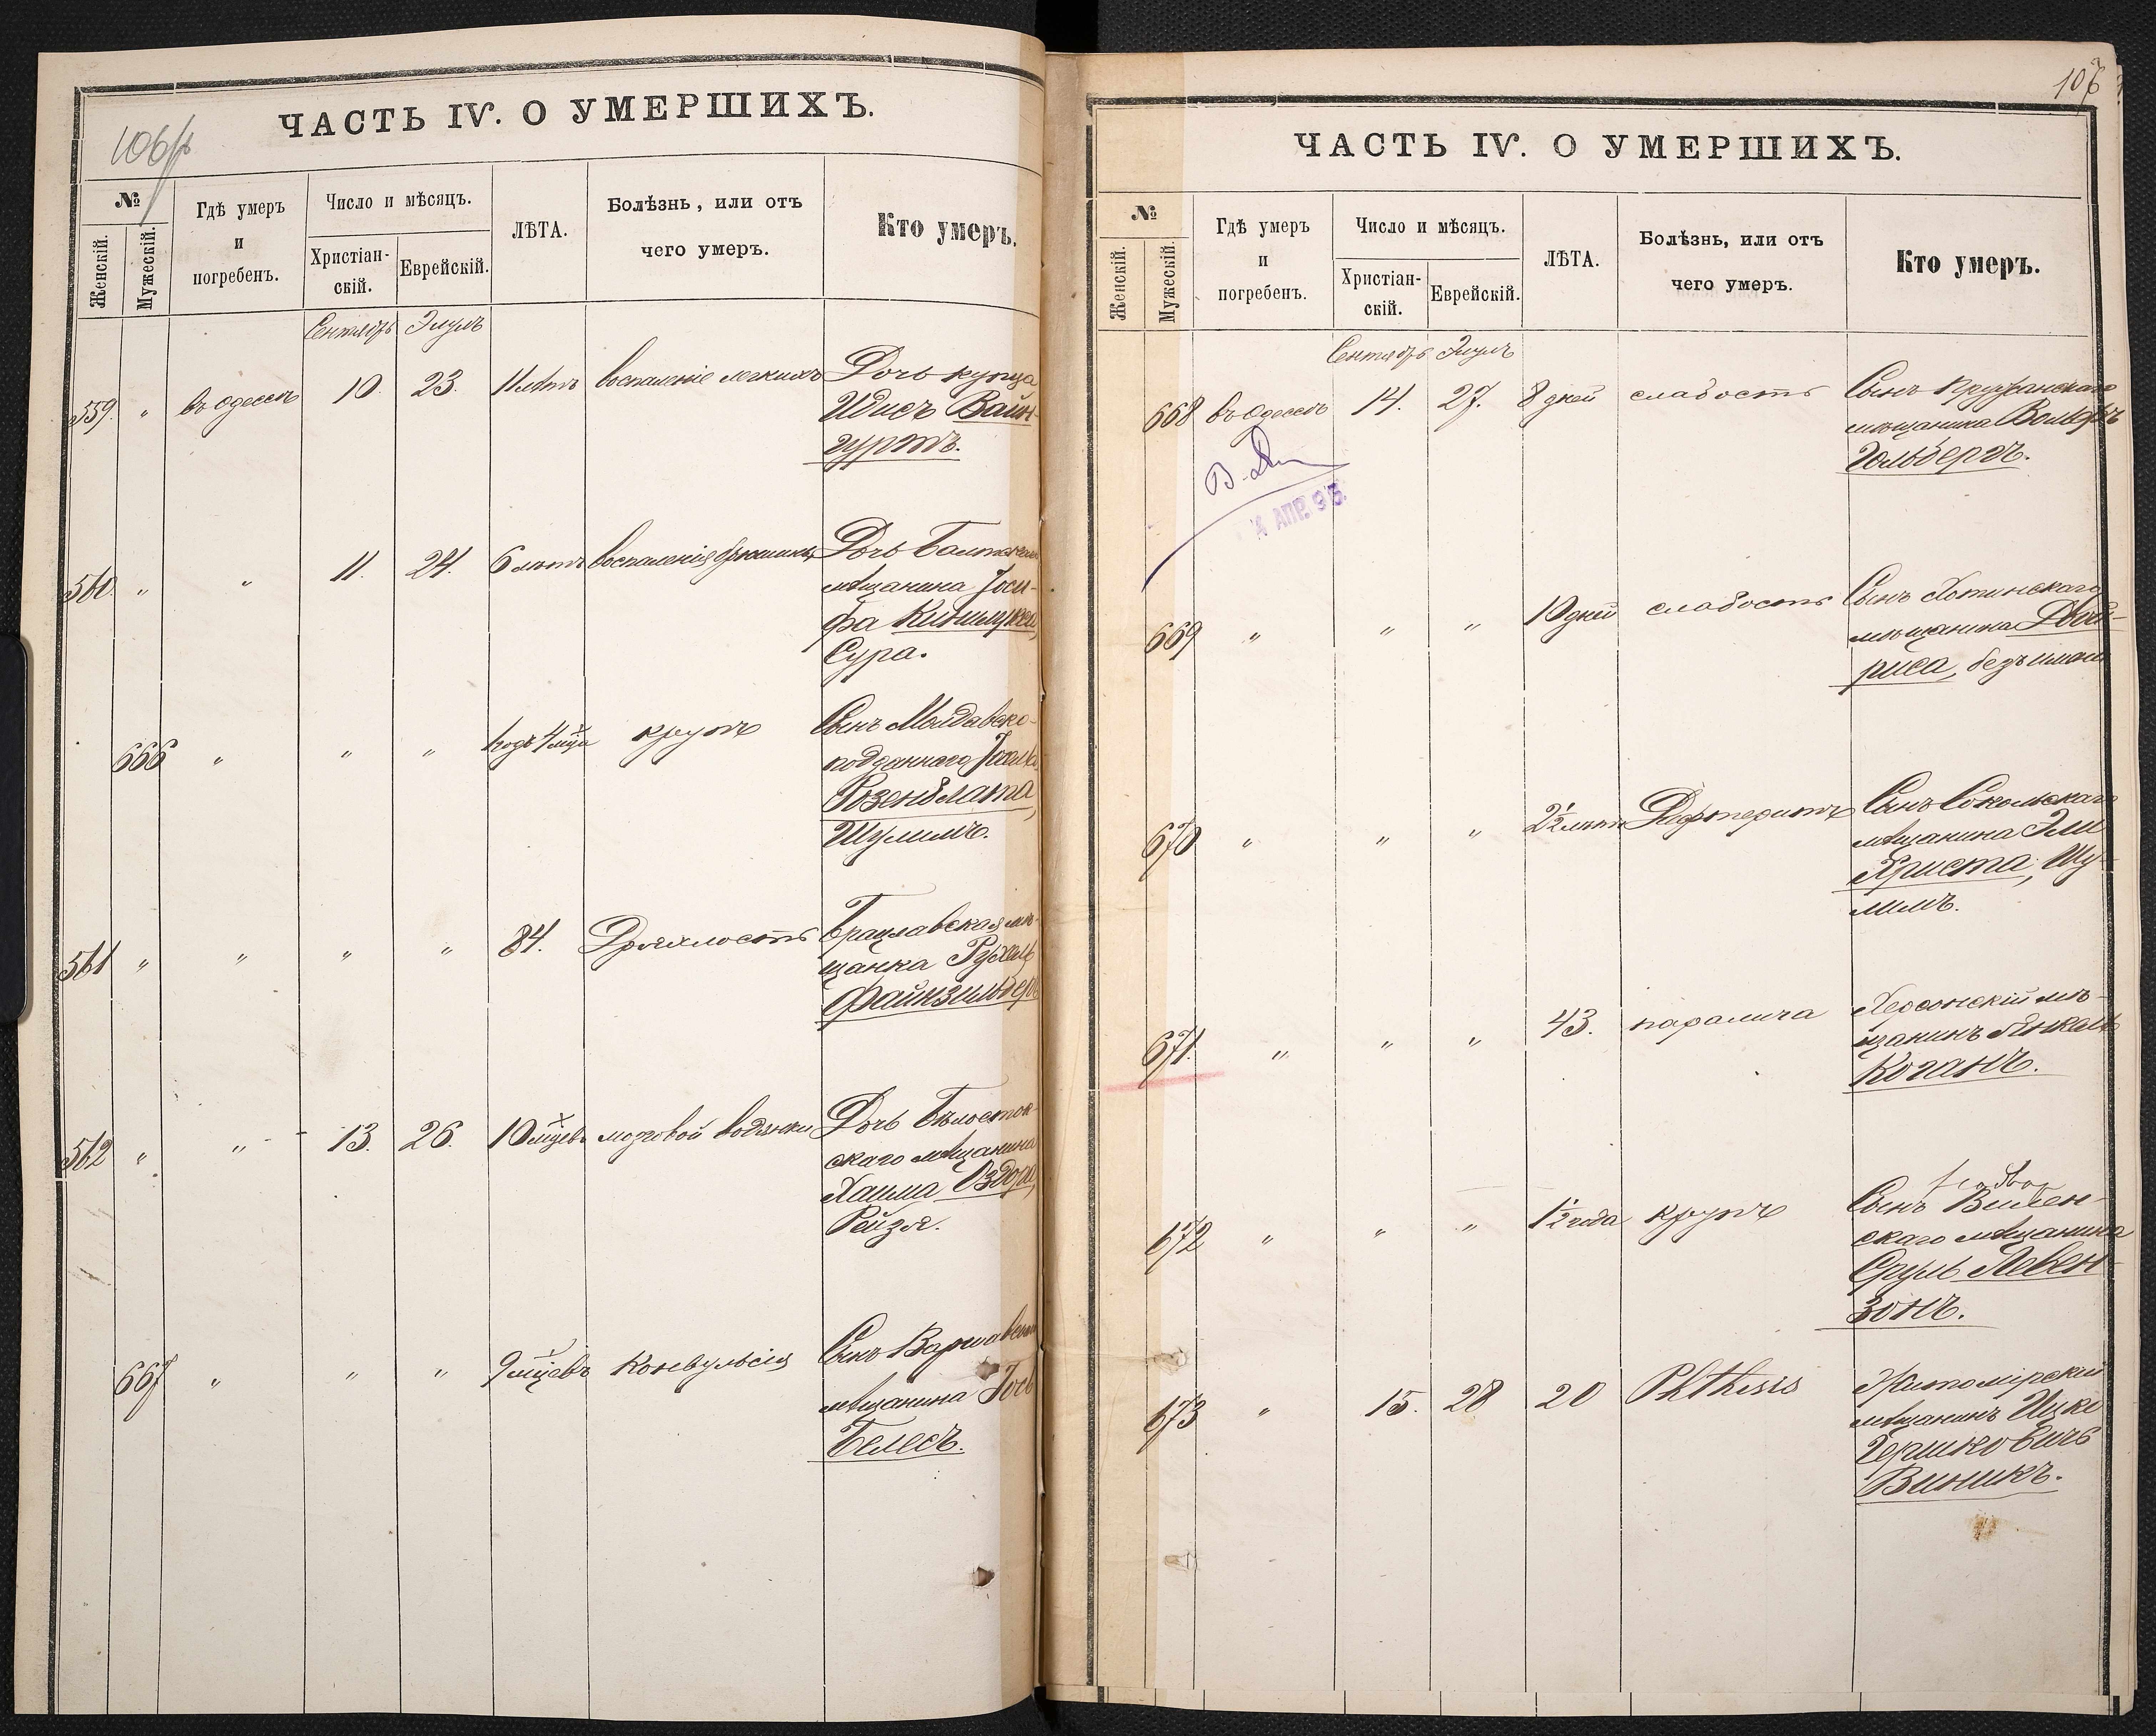 ЧАСТЬ IV. О УМЕРШИХЪ.
№
Женскій.
Мужескій.
Гдѣ умеръ
и
погребенъ.
Число и мѣсяцъ.
Христіан-
скій.
Еврейскій.
ЛѢТА.
Болѣзнь, или отъ
чего умеръ.
Кто умеръ.
Сентябрь Элулъ
559. " въ Одессѣ 10. 23. 11 лѣтъ воспаленіе легкихъ Дочь купца
Идисъ Вайн-
гуртъ.
560. " " 11. 24. 6 лѣтъ воспаленія Дочь
мѣщанина Іоси-
фа
Сура.
666 " " " годъ 4 мца крупъ Сынъ Молдавско-
подданнаго
Розенблата,
Шулимъ.
561 " " " " 84. Дряхлость Брацлавская мѣ-
щанка Рухель
Файнзильберъ
562 " " 13. 26. 10 мцевъ мозговой водянки Дочь Бѣлосток-
скаго мѣщанина
Хаима Оздора,
Рейзя.
667 " " " 9 мцевъ Конвульсія Сынъ Варшавскаго
мѣщанина Іось
Белесъ.
107
ЧАСТЬ IV. О УМЕРШИХЪ.
№
Женскій.
Мужескій.
Гдѣ умеръ
и
погребенъ.
Число и мѣсяцъ.
Христіан-
скій.
Еврейскій.
ЛѢТА.
Болѣзнь, или отъ
чего умеръ.
Кто умеръ.
Сентябрь Элулъ
668 въ Одессѣ 14. 27. 8 дней слабость Сынъ Пружанскаго
мѣщанина Вольфъ
Гольбергъ.
АПР. 93
669 " " " 10 дней слабость Сынъ Хотинскаго
мѣщанина Двой-
риса, безъ имени
670 " " " 2½ лѣтъ Дифтеритъ Сынъ Сокольскаго
мѣщанина Эли
Христа, Шу-
лимъ.
671. " " " 43. паралича Херсонскій мѣ-
щанинъ Янкель
Коганъ.
672 " " " 1½ года крупъ Сынъ Вилен-
скаго мѣщанина
Сруль Левен-
зонъ.
673 " 15. 28 20 Phthisis Житомірскій
мѣщанинъ Ицко
Гершковичъ
Виникъ.